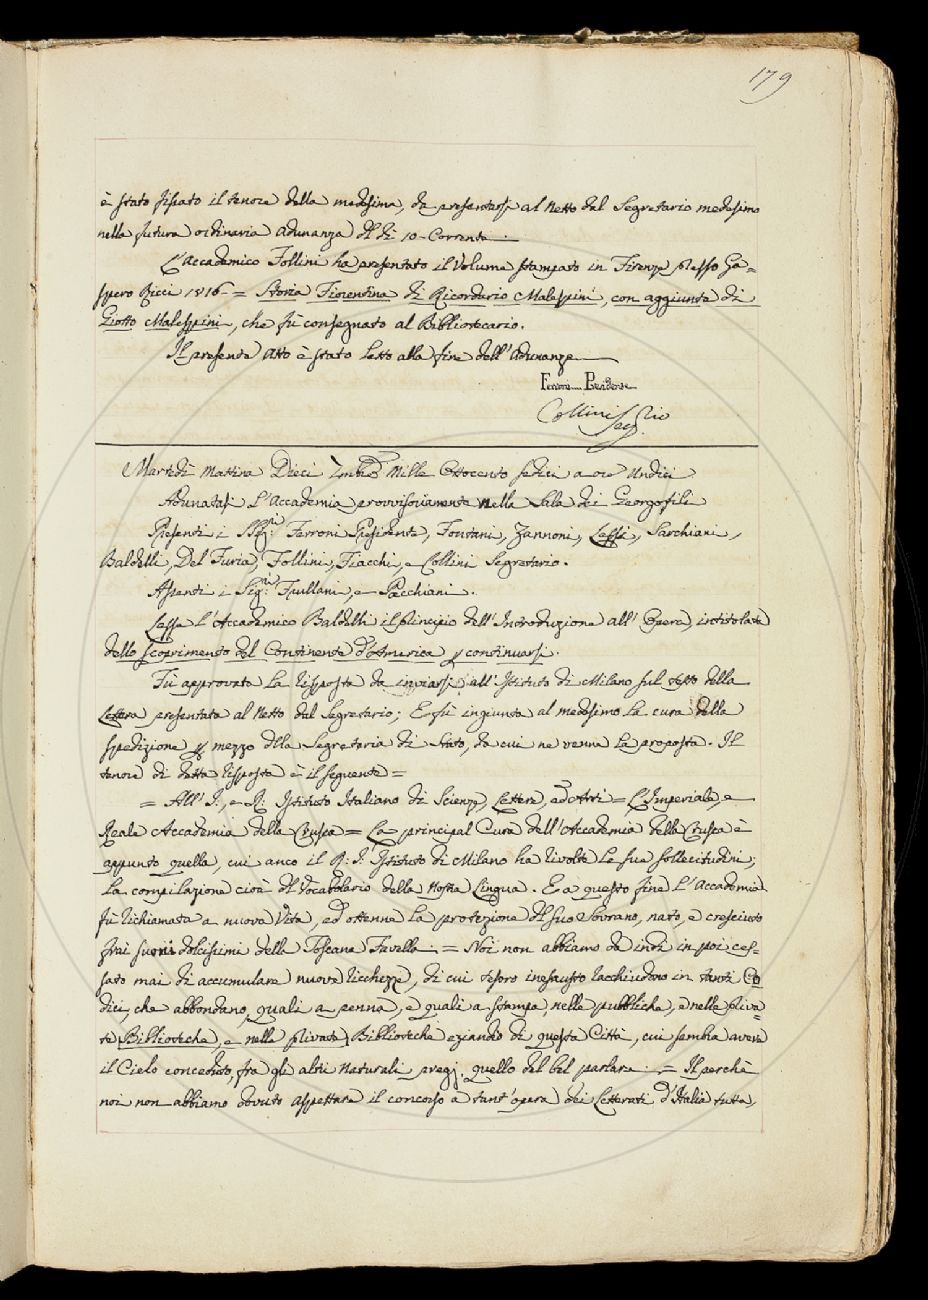 179
è stato fissato il tenore della medesima, da presentarsi al netto dal Segretario medesimo
nella futura ordinaria adunanza del dì 10 Corrente.
L'Accademico Follini ha presentato il Volume stampato in Firenze presso Ga=
spero Ricci 1816 = Storia Fiorentina di Ricordano Malespini, con aggiunta di
Giotto Malespini, che fù consegnato al Bibliotecario.
Il presente Atto è stato letto alla fine dell'Adunanza
Ferroni Presidente
Collini Seg.rio
Martedì Mattina Dieci Xmbre Mille Ottocento sedici a ore Undici
Adunatasi L'Accademia provvisoriamente nella Sala dei Georgofili
Presenti i SSig.ri Ferroni Presidente, Fontani, Zannoni, Lessi, Sarchiani,
Baldelli, Del Furia, Follini, Fiacchi, e Collini Segretario.
Assenti i Sig.ri Frullani, e Pacchiani.
Lesse L'Accademico Baldelli il principio dell'Introduzione all'Opera intitolata
dello scoprimento del Continente d'America p continuarsi.
Fù approvata La risposta da inviarsi all'Istituto di Milano sul testo della
Lettera presentata al Netto dal Segretario; E fù ingiunta al medesimo La cura della
spedizione p mezzo della Segreteria di Stato, da cui ne venne La proposta. Il
tenore di detta risposta è il seguente =
= All'I:, e R: Istituto Italiano di Scienze, Lettere, ed Arti = L'Imperiale, e
Reale Accademia della Crusca = La principal Cura dell'Accademia della Crusca è
appunto quella, cui anco il R: I: Istituto di Milano ha rivolte Le sue sollecitudini;
La compilazione cioè del Vocabolario della Nostra Lingua. E a questo fine L'Accademia
fù richiamata a nuova Vita, ed ottenne La protezione del suo Sovrano, nato, e cresciuto
frai suoni dolcissimi della Toscana Favella = Noi non abbiamo da indi in poi ces=
sato mai di accumulare nuove ricchezze, di cui tesoro inesausto racchiudono in tanti Co
dici, che abbondano, quali a penna, e quali a stampa, nelle pubbliche, e nelle priva=
te Biblioteche, e nelle private Biblioteche eziandio di questa Città, cui sembra avere
il Cielo conceduto, fra gli altri naturali pregj, quello del bel parlare. = Il perchè
noi non abbiamo dovuto aspettare il concorso a tant'opera dei Letterati d'Italia tutta,